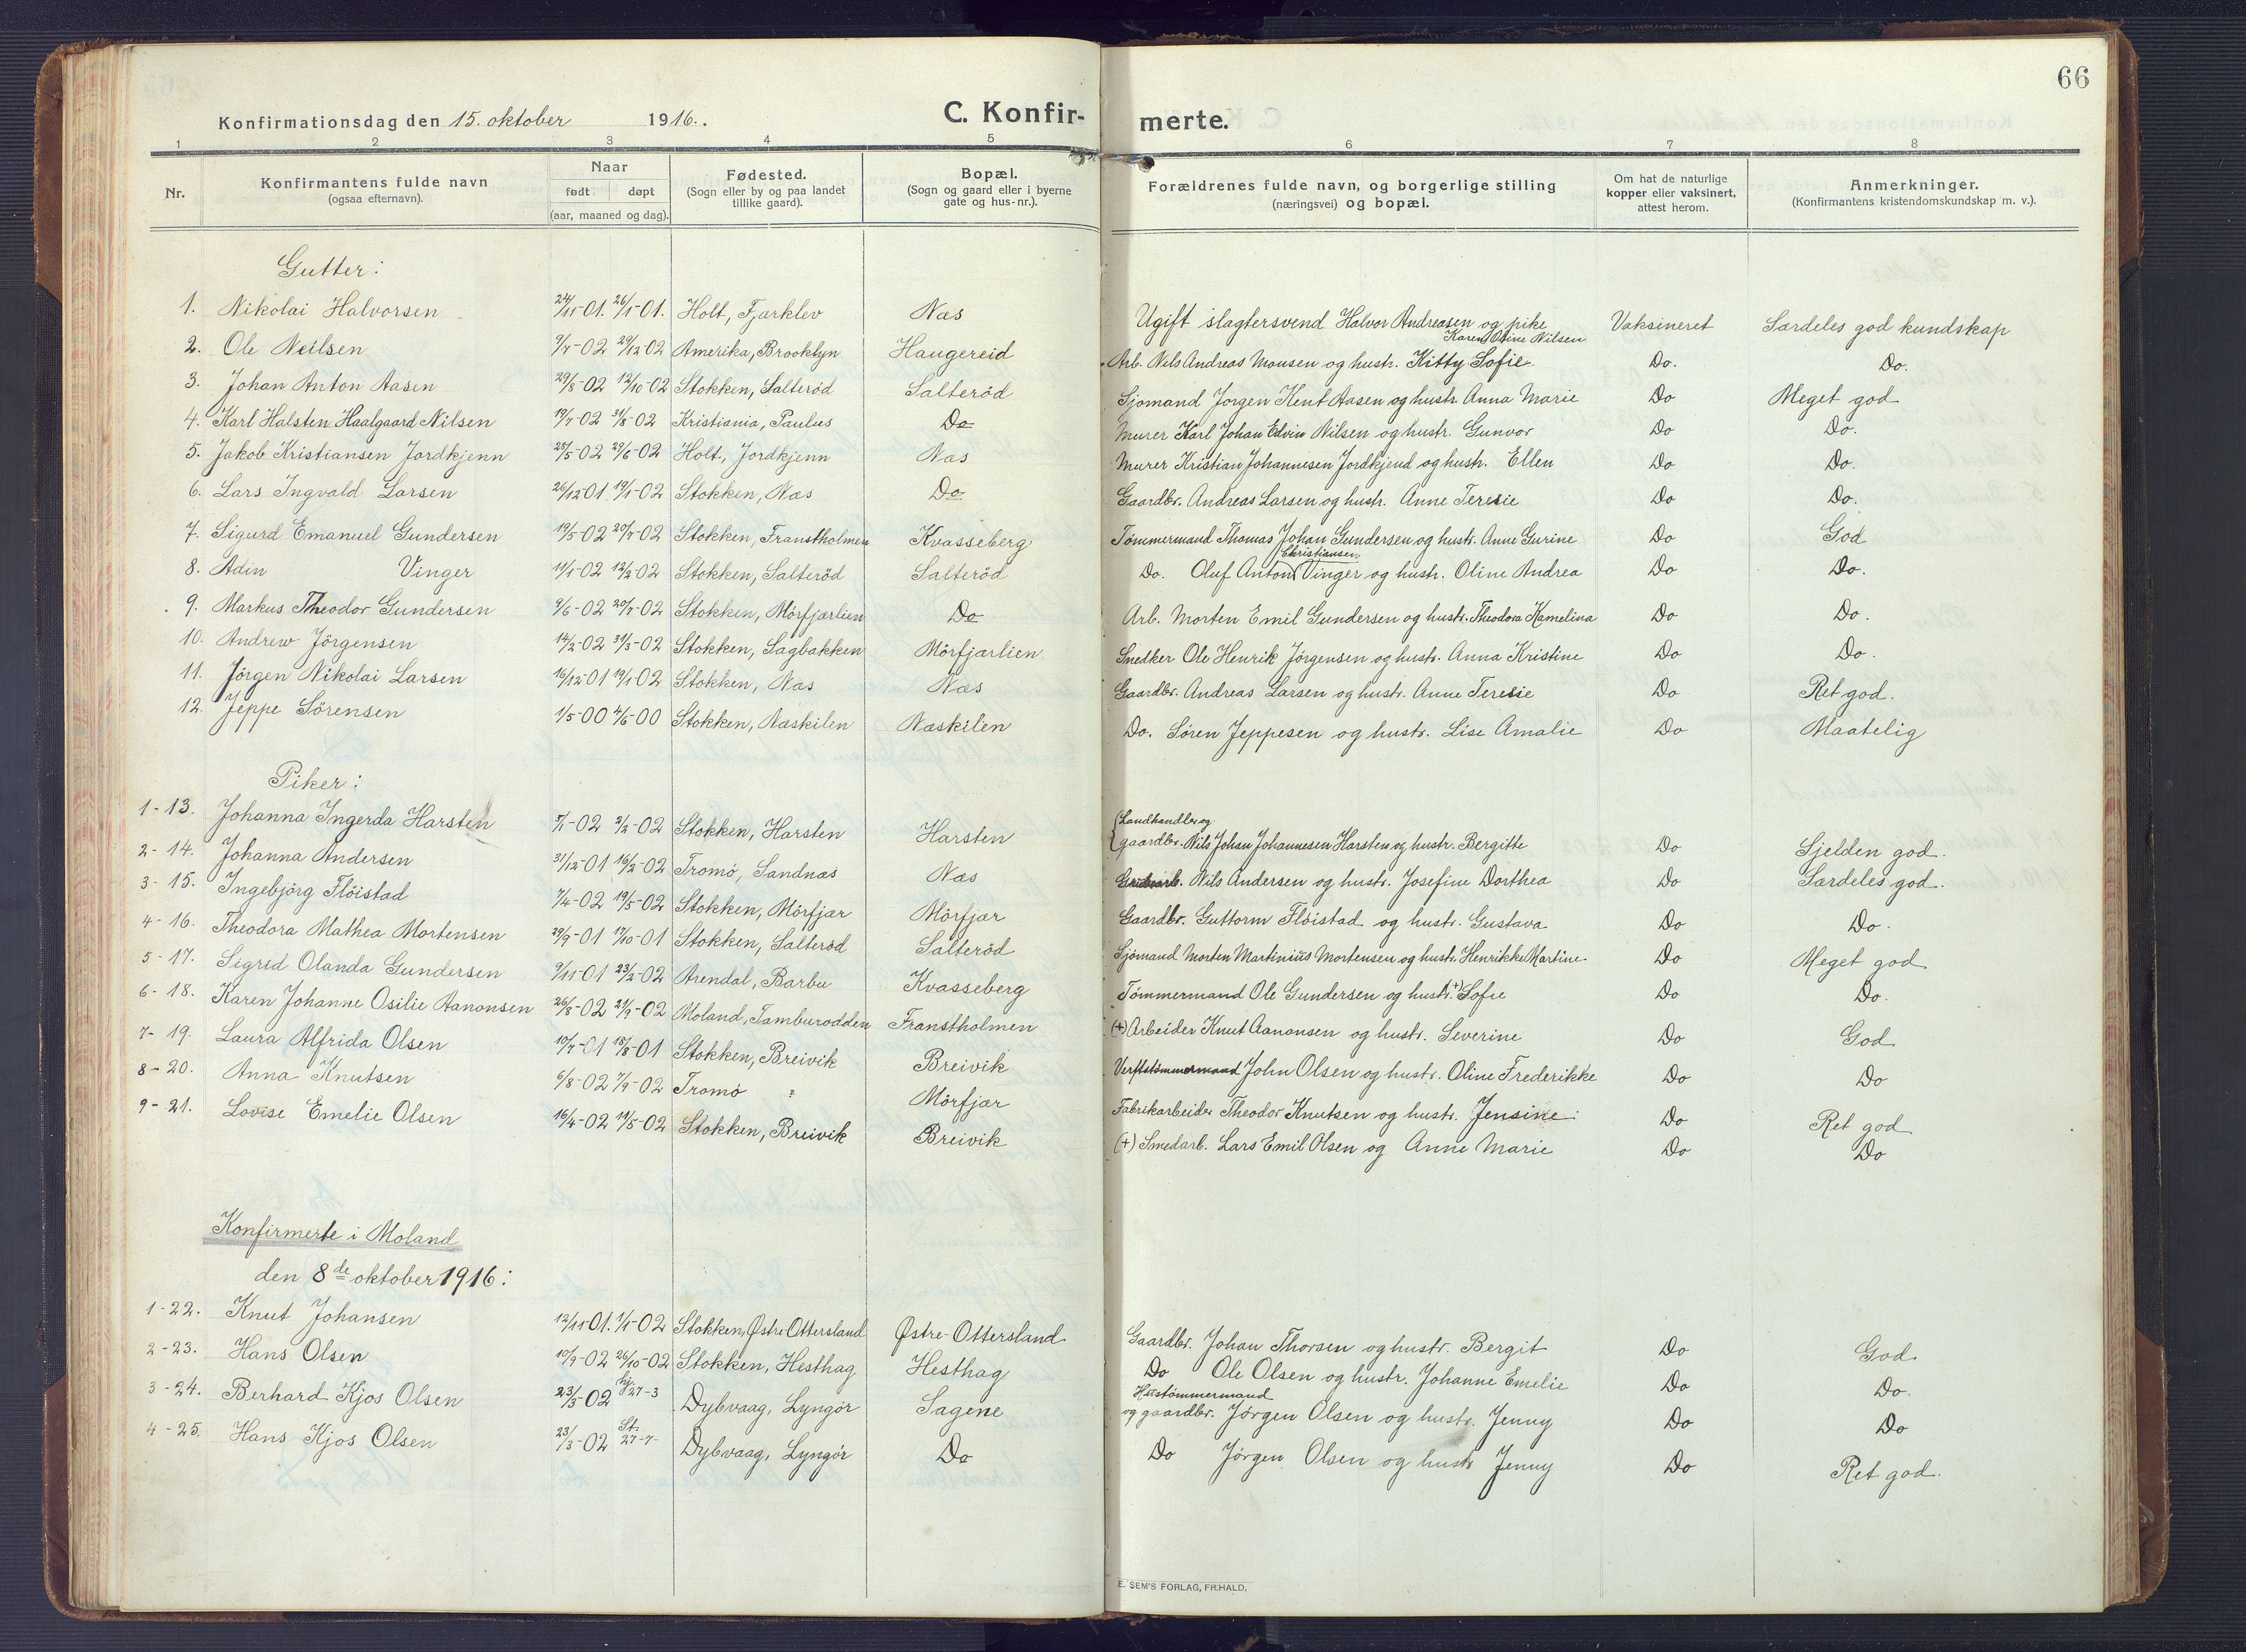 66
Konfirmationsdag den 15. oktober 1916.
C. Konfirmerte.
1 2 3 4 5 6 7 8
Nr.
Konfirmantens fulde navn
(ogsaa efternavn).
Naar
født døpt
(aar, maaned og dag).
Fødested.
(Sogn eller by og paa landet
tillike gaard).
Bopæl.
(Sogn og gaard eller i byerne
gate og hus-nr.).
Forældrenes fulde navn, og borgerlige stilling
(næringsvei) og bopæl.
Om hat de naturlige
kopper eller vaksinert,
attest herom.
Anmerkninger.
(Konfirmantens kristendomskundskap m. v.).
Gutter:
1. Nikolai Halvorsen 24/11-01. 26/1-01. Holt, Fjærklev Næs Ugift slagtersvend Halvor Andreasen og pike Karen Oline Nilsen Vaksineret Særdeles god kundskap
2. Ole Neilsen 9/7-02 29/12 02 Amerika, Brooklyn Haugereid Arb. Nils Andreas Monsen og hustr. Kitty Sofie Do. Do.
3. Johan Anton Aasen 29/8-02 12/10-02 Stokken, Salteröd Salteröd Sjömand Jørgen Kent Aasen og hustr. Anna Marie Do Meget god
4. Karl Halsten Haalgaard Nilsen 19/7-02 31/8-02 Kristiania, Paulus Do Murer Karl Johan Edvin Nilsen og hustr. Gunvor Do Do.
5. Jakob Kristiansen Jordkjenn 25/5-02 29/6-02 Holt, Jordkjenn Næs Murer Kristian Johannesen Jordkjend og hustr. Ellen Do Do.
6. Lars Ingvald Larsen 26/12-01 19/1-02 Stokken, Næs Do Gaardbr. Andreas Larsen og hustr. Anne Teresie Do Do.
7. Sigurd Emanuel Gundersen 19/5-02 20/7-02 Stokken, Franstholmen Kvasseberg Tömmermand Thomas Johan Gundersen og hustr. Anne Gurine Do God
8. Adin Vinger 11/1-02 12/2-02 Stokken, Salteröd Salteröd Do. Oluf Anton Christiansen Vinger og hustr. Oline Andrea Do Do.
9. Markus Theodor Gundersen 9/6-02 20/7-02 Stokken, Mörfjærlien Do Arb. Morten Emil Gundersen og hustr. Theodora Kamelina Do Do.
10. Andrew Jörgensen 14/2-02 31/3-02 Stokken, Sagbakken Mörfjærlien Snedker Ole Henrik Jörgensen og hustr. Anna Kristine Do Do.
11. Jörgen Nikolai Larsen 16/12-01 19/1 02 Stokken, Næs Næs Gaardbr. Andreas Larsen og hustr. Anne Teresie Do Ret god.
12. Jeppe Sörensen 1/5-00 4/6-00 Stokken, Næskilen Næskilen Do. Sören Jeppesen og hustr. Lise Amalie Do Maatelig
Piker:
1-13. Johanna Ingerda Harsten -02 -02 Stokken, Harsten Harsten Landhandler og gaardbr. Nils Johan Johannesen Harsten og hustr. Bergitte Do Sjelden god.
2-14. Johanna Andersen 31/12-01 16/2-02 Tromö, Sandnæs Næs Nils Andersen og hustr. Josefine Dorthea Do Særdeles god.
3-15. Ingebjörg Flöistad 7/4-02 19/5-02 Stokken, Mörfjær Mörfjær Gaardbr. Guttorm Flöistad og hustr. Gustava Do Do.
4-16. Theodora Mathea Mortensen 29/9-01 17/10-01 Stokken, Salteröd Salteröd Sjömand Morten Martinius Mortensen og hustr. Henrikke Martine Do Meget god
5-17. Sigrid Olanda Gundersen 9/11-01 23/2-02 Arendal, Barbu Kvasseberg Tömmermand Ole Gundersen og hustr. +) Sofie Do Do.
6-18. Karen Johanne Osilie Aanonsen 26/8-02 21/9-02 Moland, Tamburodden Franstholmen (+) Arbeider Knut Aanonsen og hustr. Severine Do God
7-19. Laura Alfrida Olsen 10/7-01 18/8-01 Stokken, Breivik Breivik Verftstömmermand John Olsen og hustr. Oline Frederikke Do Do
8-20. Anna Knutsen 6/8-02 7/9-02 Tromö ? Mörfjær Fabrikarbeider Theodor Knutsen og hustr. Jensine Do Ret god
9-21. Lovise Emelie Olsen 16/4-02 11/5-02 Stokken, Breivik Breivik (+) Smedarb. Lars Emil Olsen og Anne Marie Do Do
Konfirmerte i Moland
den 8de oktober 1916:
1-22. Knut Johansen 12/11-01. 1/1-02 Stokken, Østre Ottersland Østre-Ottersland Gaardbr. Johan Thorsen og hustr. Bergit Do God
2-23. Hans Olsen 10/9-02 26/10-02 Stokken, Hesthag Hesthag Do Ole Olsen og hustr. Johanne Emelie Do Do.
3-24. Berhard Kjos Olsen 23/3-02 hj. 27-3 Dybvaag, Lyngör Sagene Hustömmermand og gaardbr. Jörgen Olsen og hustr. Jenny Do Do
4-25. Hans Kjos Olsen 23/3-02 St. 27-7 Dybvaag, Lyngör Do Do Jörgen Olsen og hustr Jenny Do Ret god.
E. SEM'S FORLAG, FR.HALD.